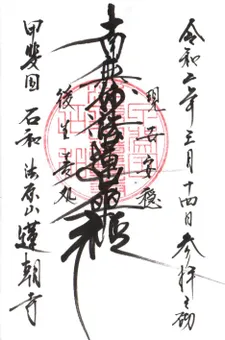 令和二年三月十四日参拝之砌
現世安穏
南無妙法蓮華経
後生善処
甲斐国 石和 法京山 蓮朝寺